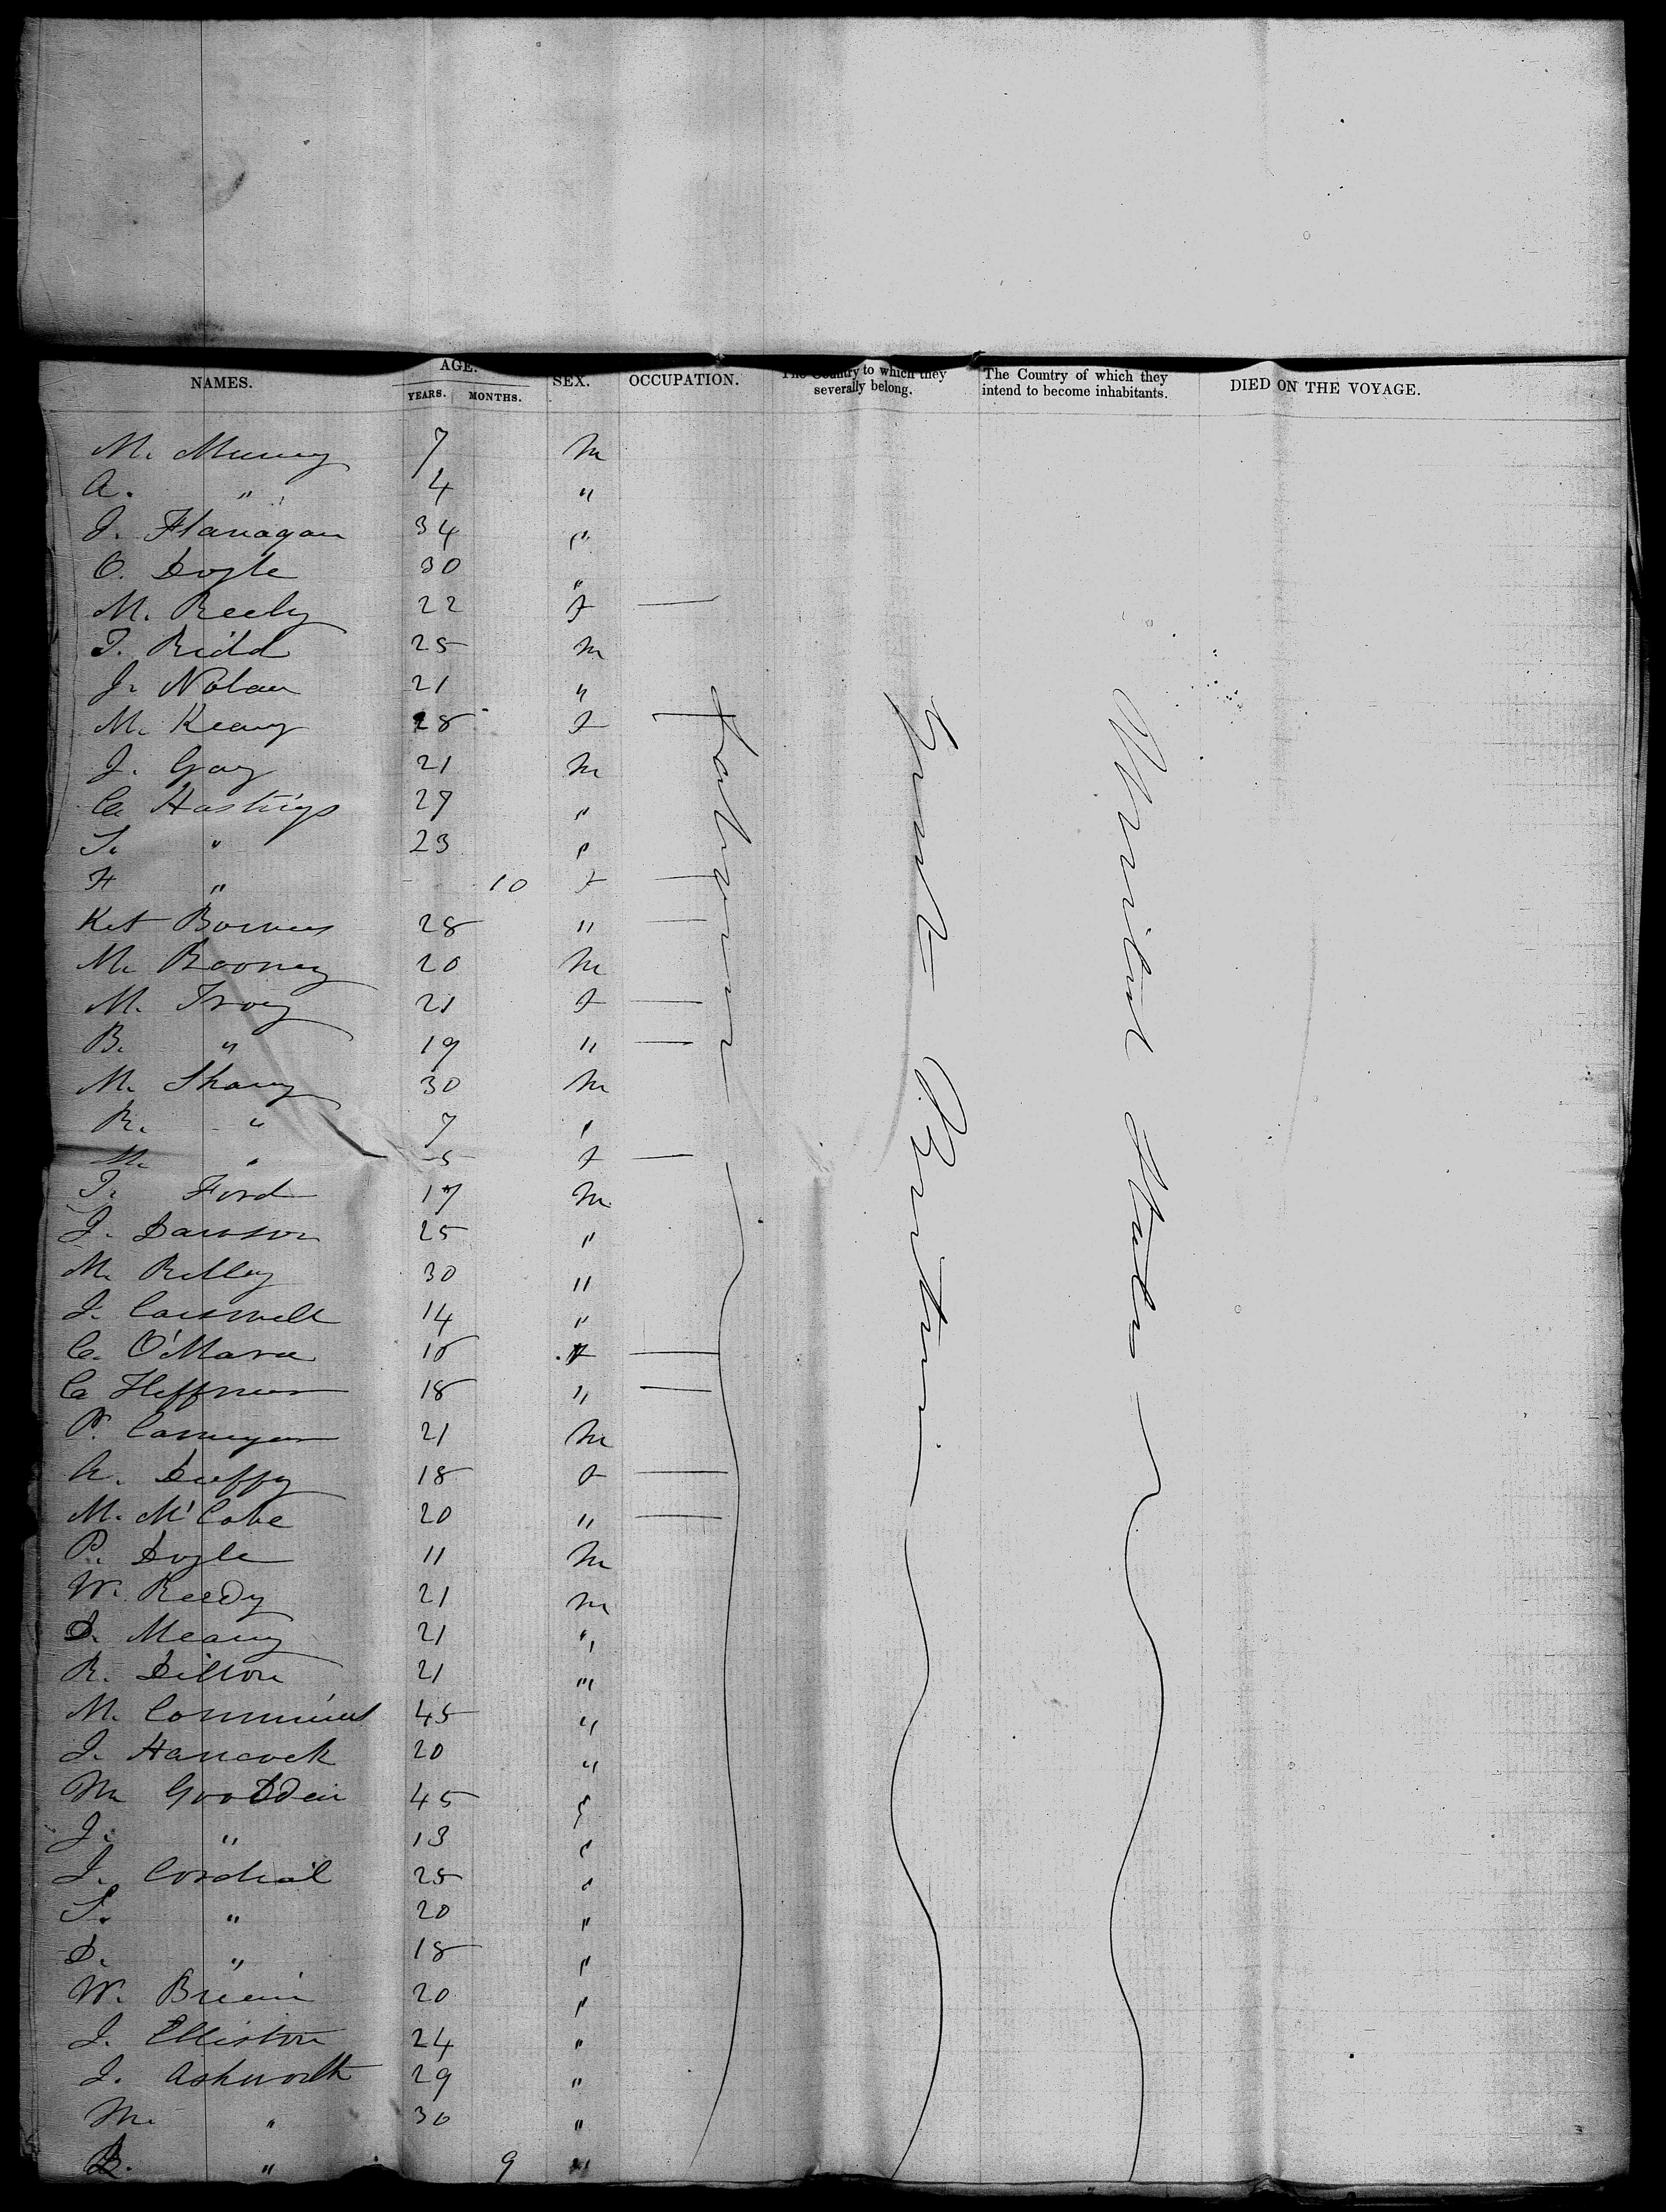 NAMES. AGE. YEARS. MONTHS. SEX. OCCUPATION. The Country to which they severally belong. The Country of which they intend to become inhabitants. DIED ON THE VOYAGE.
M. Murray 7 M
A. " 4 "
J. Flanagan 34 "
O. Doyle 30 "
M. Reely 22 f —
T. Ridd 25 M
J. Nolan 21 "
M. Keany 28 f —
J. Gay 21 M
C. Hastings 27 "
S. " 23 "
H " 10 f —
Ket 28 " —
M. Rooney 20 M
M. Troy 21 f —
B. " 19 " —
M. 30 M
R. " 7 "
M. " 5 f —
T. Ford 17 M
J. Dawson 25 "
M. Rilley 30 "
J. 14 "
C. O'Mara 18 f —
C. Heffnen 18 " —
P. 21 M
A. Duffy 18 f —
M. McCabe 20 " —
P. Doyle 11 M
W. Reedy 21 M
D. Meany 21 "
R. Dillon 21 "
M. Commins 45 "
J. Hancock 20 "
M Goodden 45 "
J. " 13 "
J. Cordial 25 "
S. " 20 "
D. " 18 "
W. 20 "
J. Elliston 24 "
J. Ashworth 29 "
M. " 30 "
B. " 9 "
Laborers
Great Britain
United States